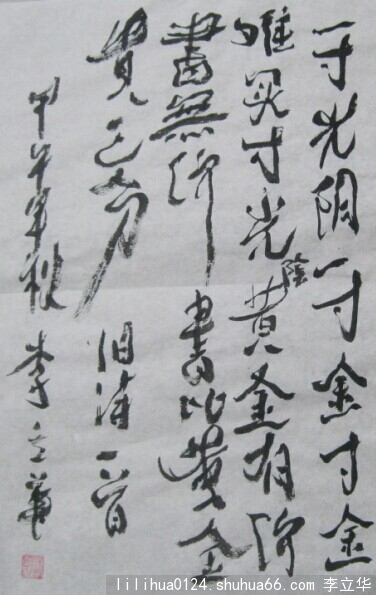 一寸光阴一寸金寸金
难買寸光陰黄金有价
書無价 書比黄金
貴三分 旧诗一首
甲午年秋 李立華
lilihua0124.shuhua66.com 李立华